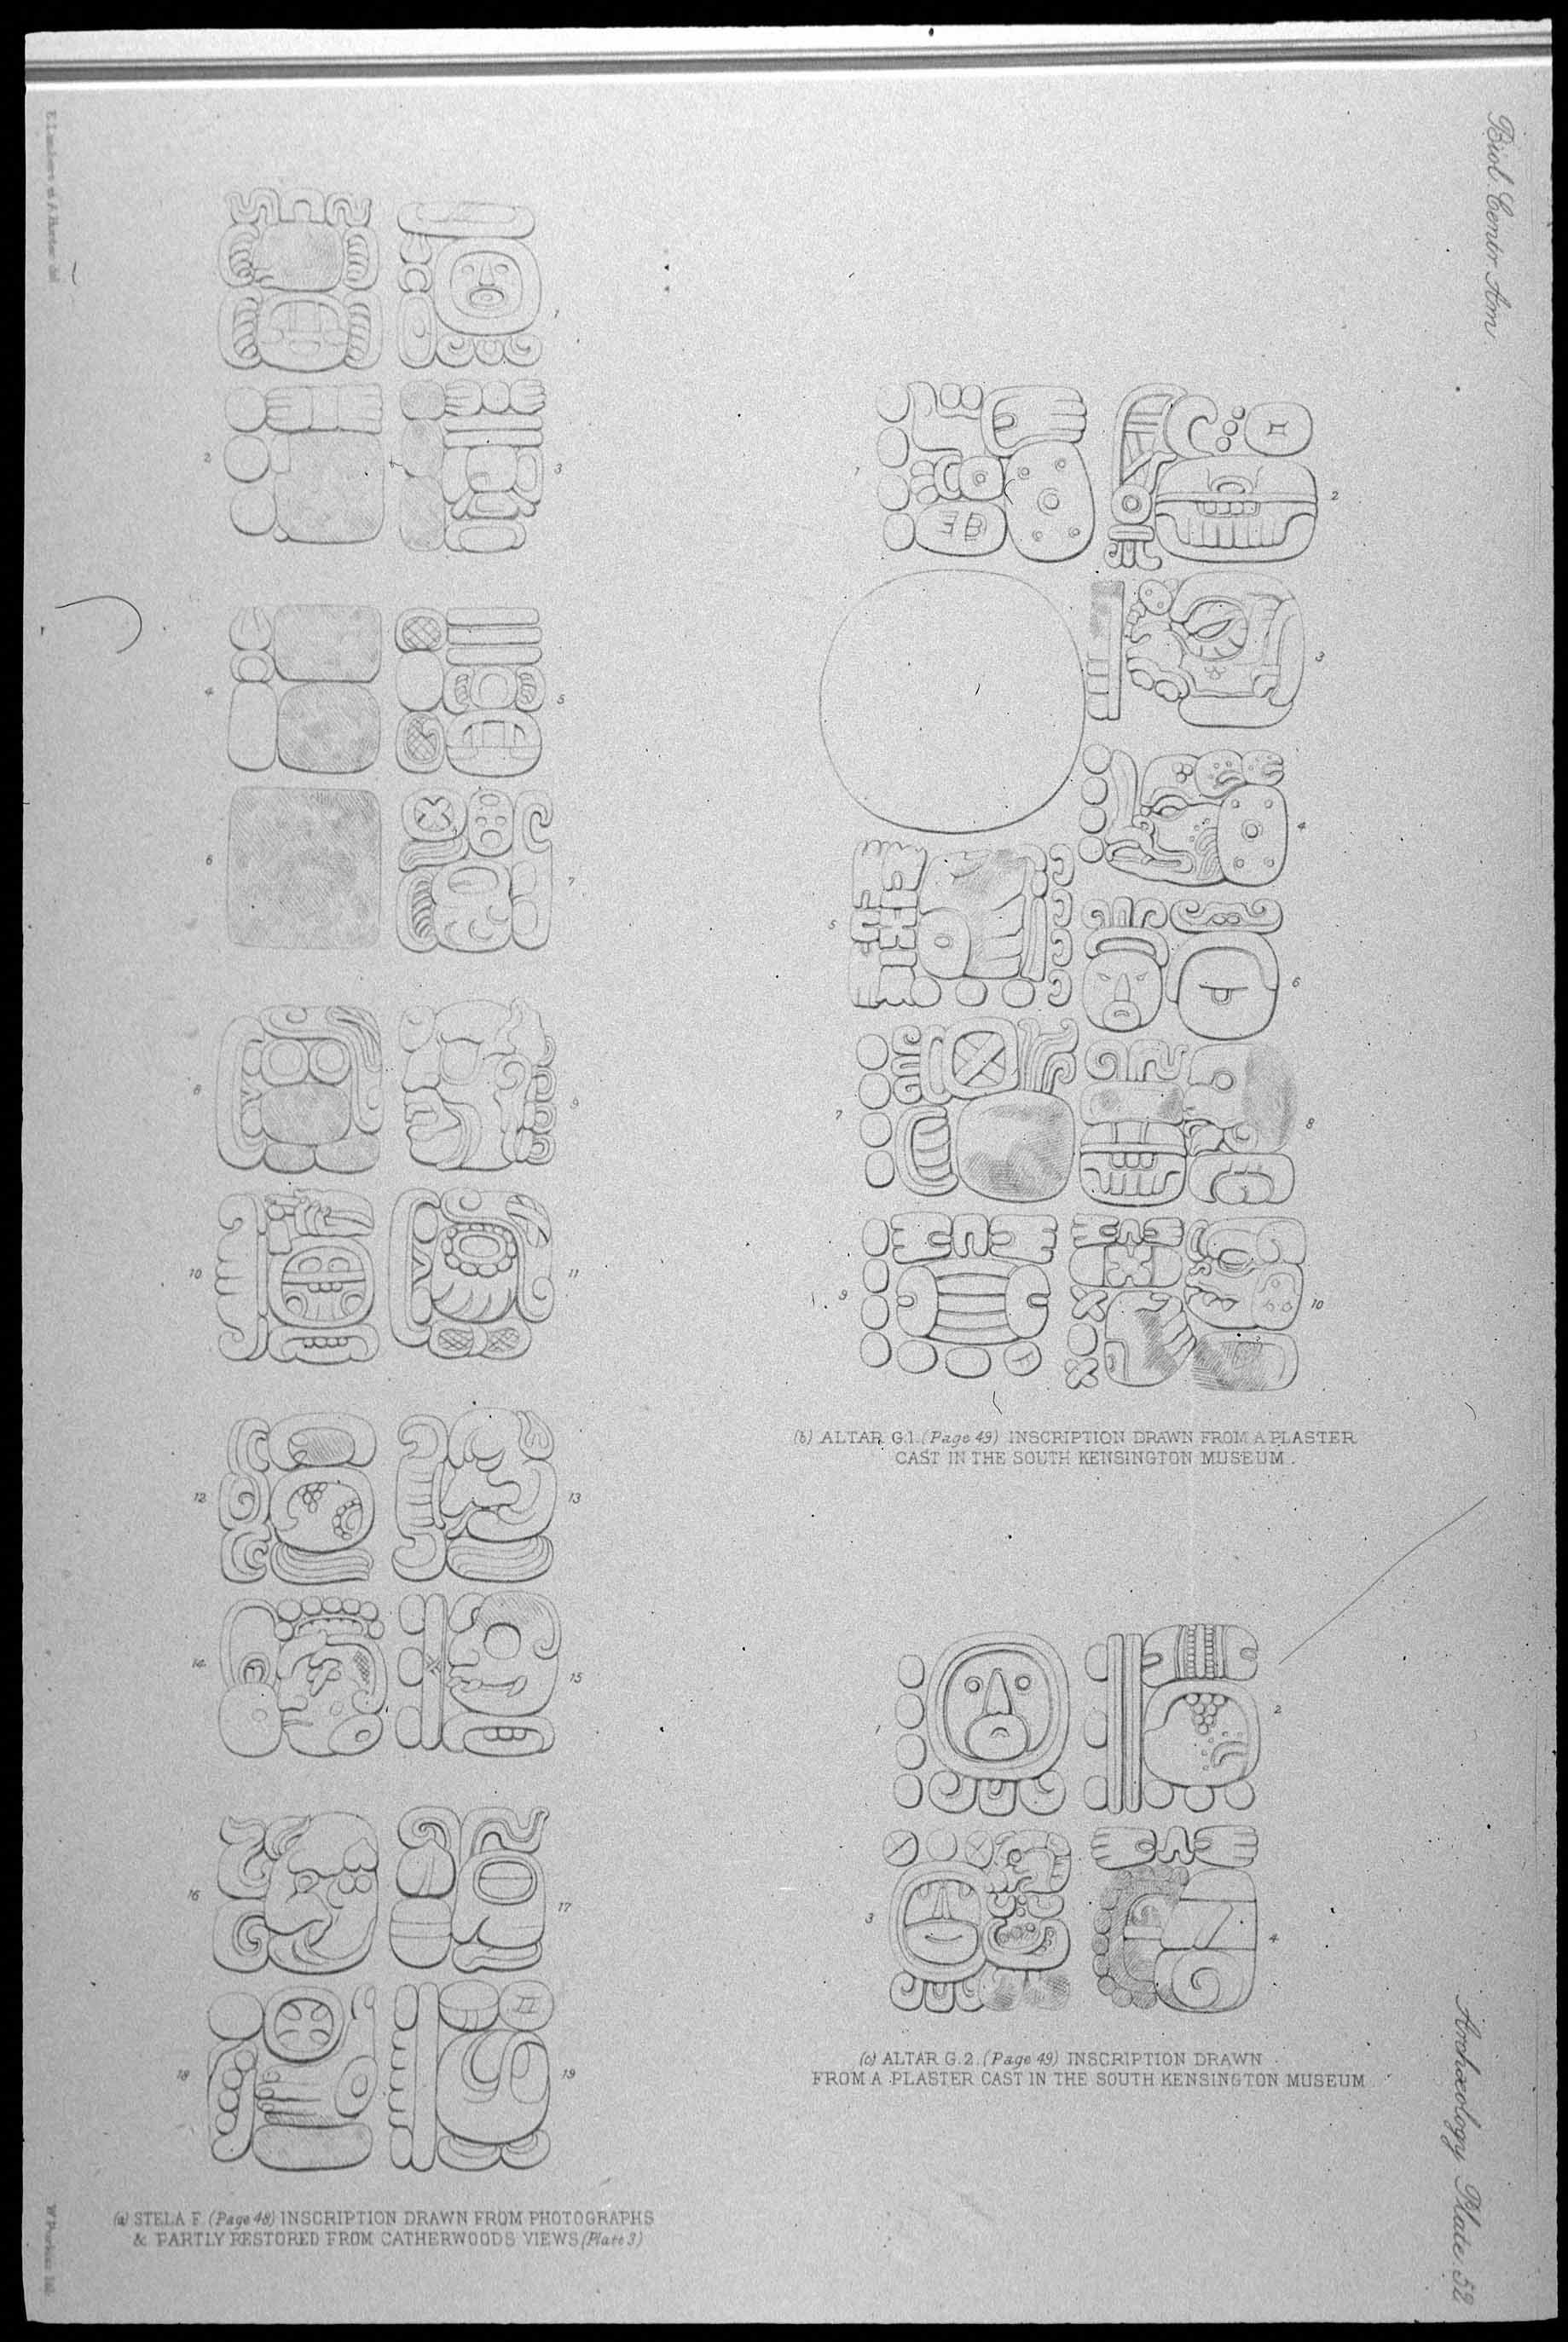 Biol. Centr. Am.
Archæology Plate. 52
1
2
3
4
5
6
7
8
9
10
11
12
13
14
15
16
17
18
19
(a) STELA F. (Page 48) INSCRIPTION DRAWN FROM PHOTOGRAPHS
& PARTLY RESTORED FROM CATHERWOODS VIEWS (Plate 3)
1
2
3
4
5
6
7
8
9
10
(b) ALTAR G.1. (Page 49) INSCRIPTION DRAWN FROM A PLASTER
CAST IN THE SOUTH KENSINGTON MUSEUM.
2
3
4
(c) ALTAR G.2. (Page 49) INSCRIPTION DRAWN
FROM A PLASTER CAST IN THE SOUTH KENSINGTON MUSEUM